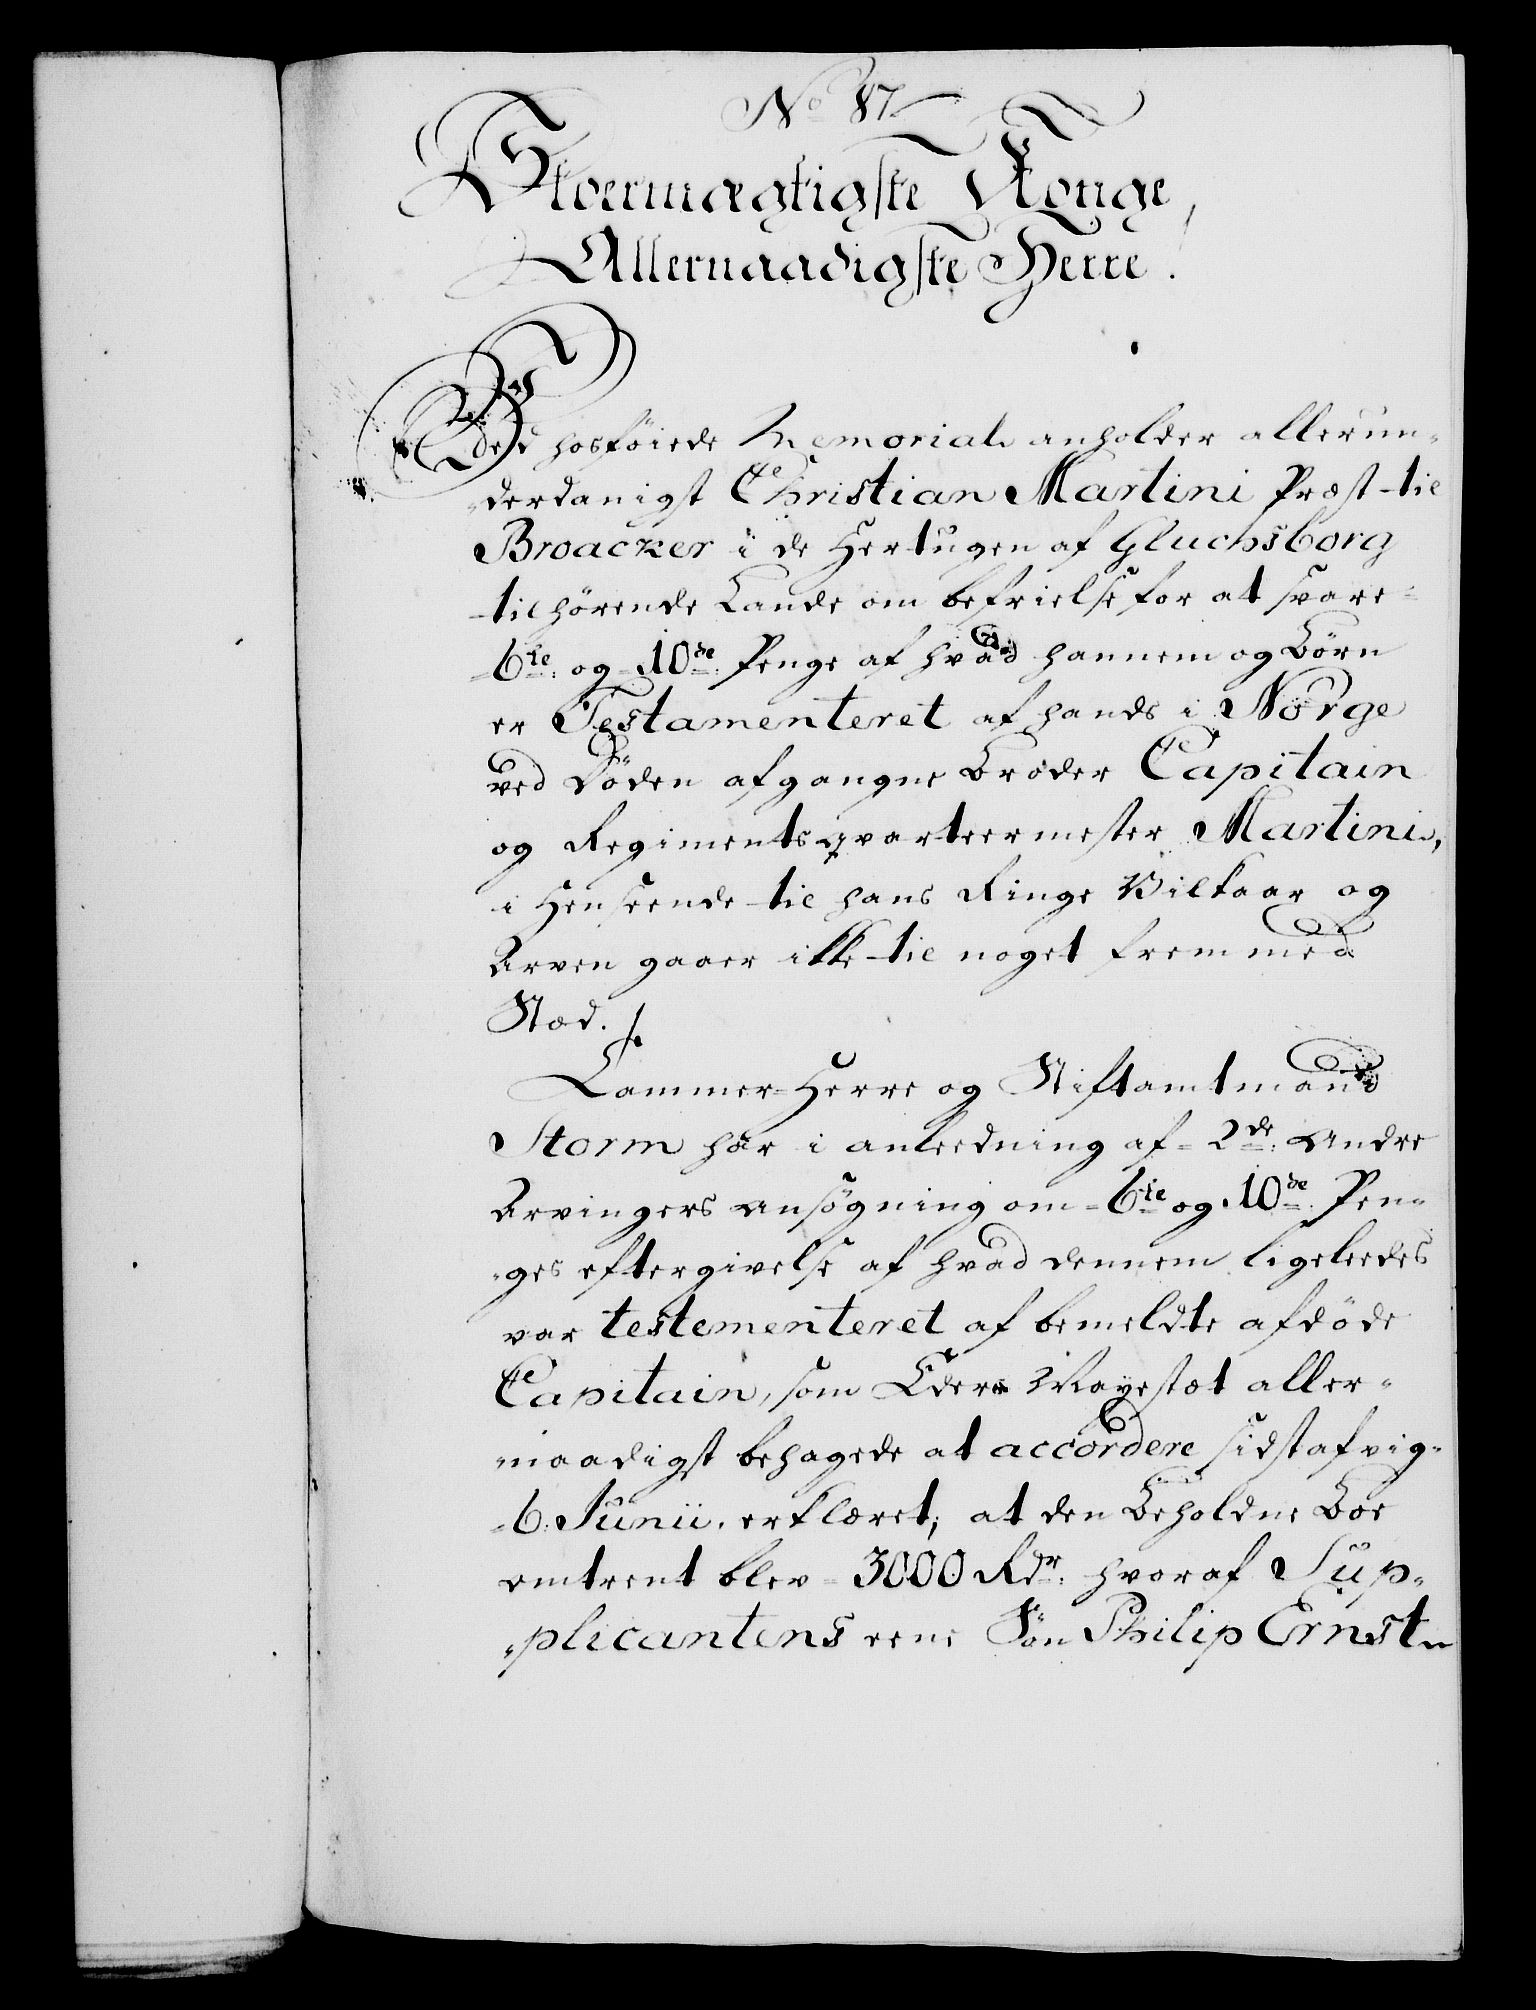 No 87.
Stoermægtigste Konge,
Allernaadigste Herre!
Ved hosføiede Memorial anholder allerun-
derdanigst Christian Martini Præst til
Broacker i de Hertugen af Gluchsborg
tilhørende Lande om befrielse for at svare
6te og 10de Penge af hvad hannem og Børn
er Testamenteret af hands i Norge
ved Döden afgangne Broder Capitain
og Regimentsqvarteermester Martini,
i Henseende til hans Ringe Vilkaar og
Arven gaaer ikke til noget fremmed
Stæd.
Cammer-Herre og Stiftamtmand
Storm har i anleedning af 2de andre
Arvingers ansøgning om 6te og 10de Pen-
ges eftergivelse af hvad dennem ligeleedes
var testementeret af bemeldte afdöde
Capitain, som Eders Mayestæt aller-
naadigst behagede at accordere sidstafvig-
6. Junii. erklæret; at den Beholdne Boe
omtrent blev 3000 Rdr. hvoraf Sup-
plicantens eene Sön Philip Ernst